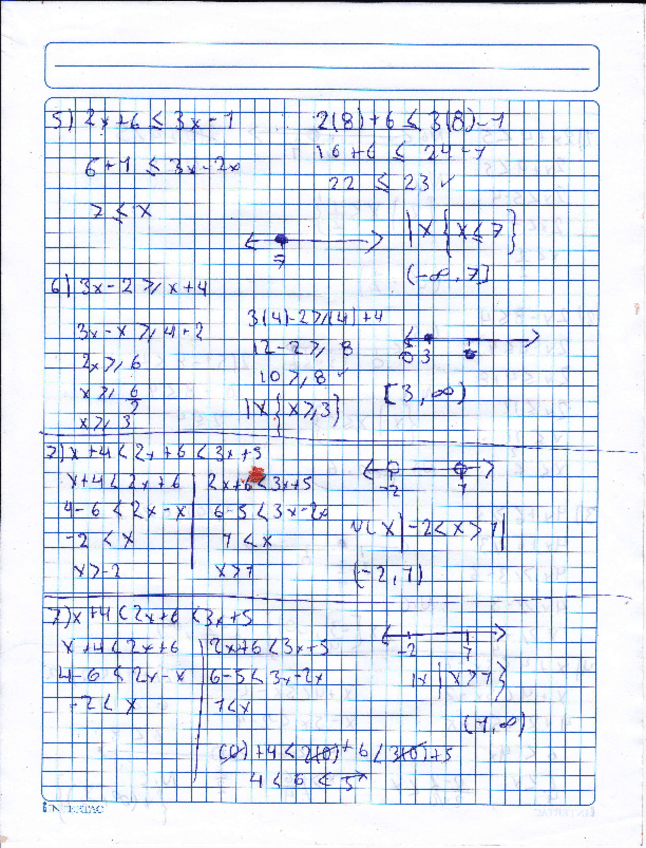 5) 2x+6 ≤ 3x-1
2(8)+6 ≤ 3(8)-1
6+1 ≤ 3x-2x
16+6 ≤ 24-1
22 ≤ 23 ✓
7 ≤ x
7
|x{x≤7}
(-∞,7]
6) 3x-2 ≥ x+4
3x-x ≥ 4+2
2x ≥ 6
x ≥ 6/2
x ≥ 3
3(4)-2 ≥ (4)+4
12-2 ≥ 8
10 ≥ 8 ✓
|x{x≥3}
0 3
[3,∞)
7) x+4 < 2x+6 < 3x+5
x+4 < 2x+6 | 2x+6 < 3x+5
4-6 < 2x-x | 6-5 < 3x-2x
-2 < x | 1 < x
x>-2 | x>1
-2 1
x|-2<x>1|
(-2,1)
7) x+4 < 2x+6 < 3x+5
x+4 < 2x+6 | 2x+6 < 3x+5
4-6 < 2x-x | 6-5 < 3x-2x
-2 < x | 1 < x
-2 1
|x|x>1}
(1,∞)
(0)+4 < 2(0)+6 < 3(0)+5
4 < 6 < 5